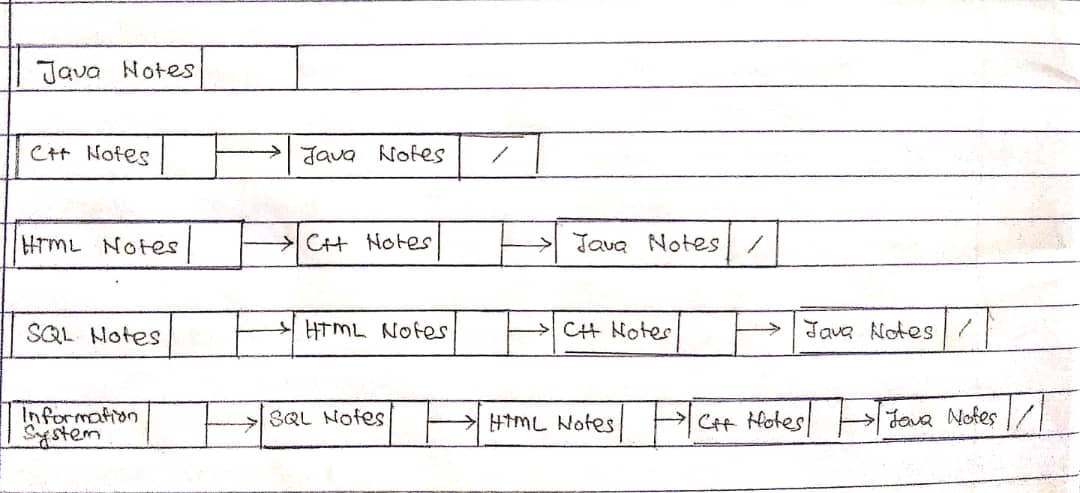 Java Notes
C++ Notes Java Notes /
HTML Notes C++ Notes Java Notes /
SQL Notes HTML Notes C++ Notes Java Notes /
Information System SQL Notes HTML Notes C++ Notes Java Notes /